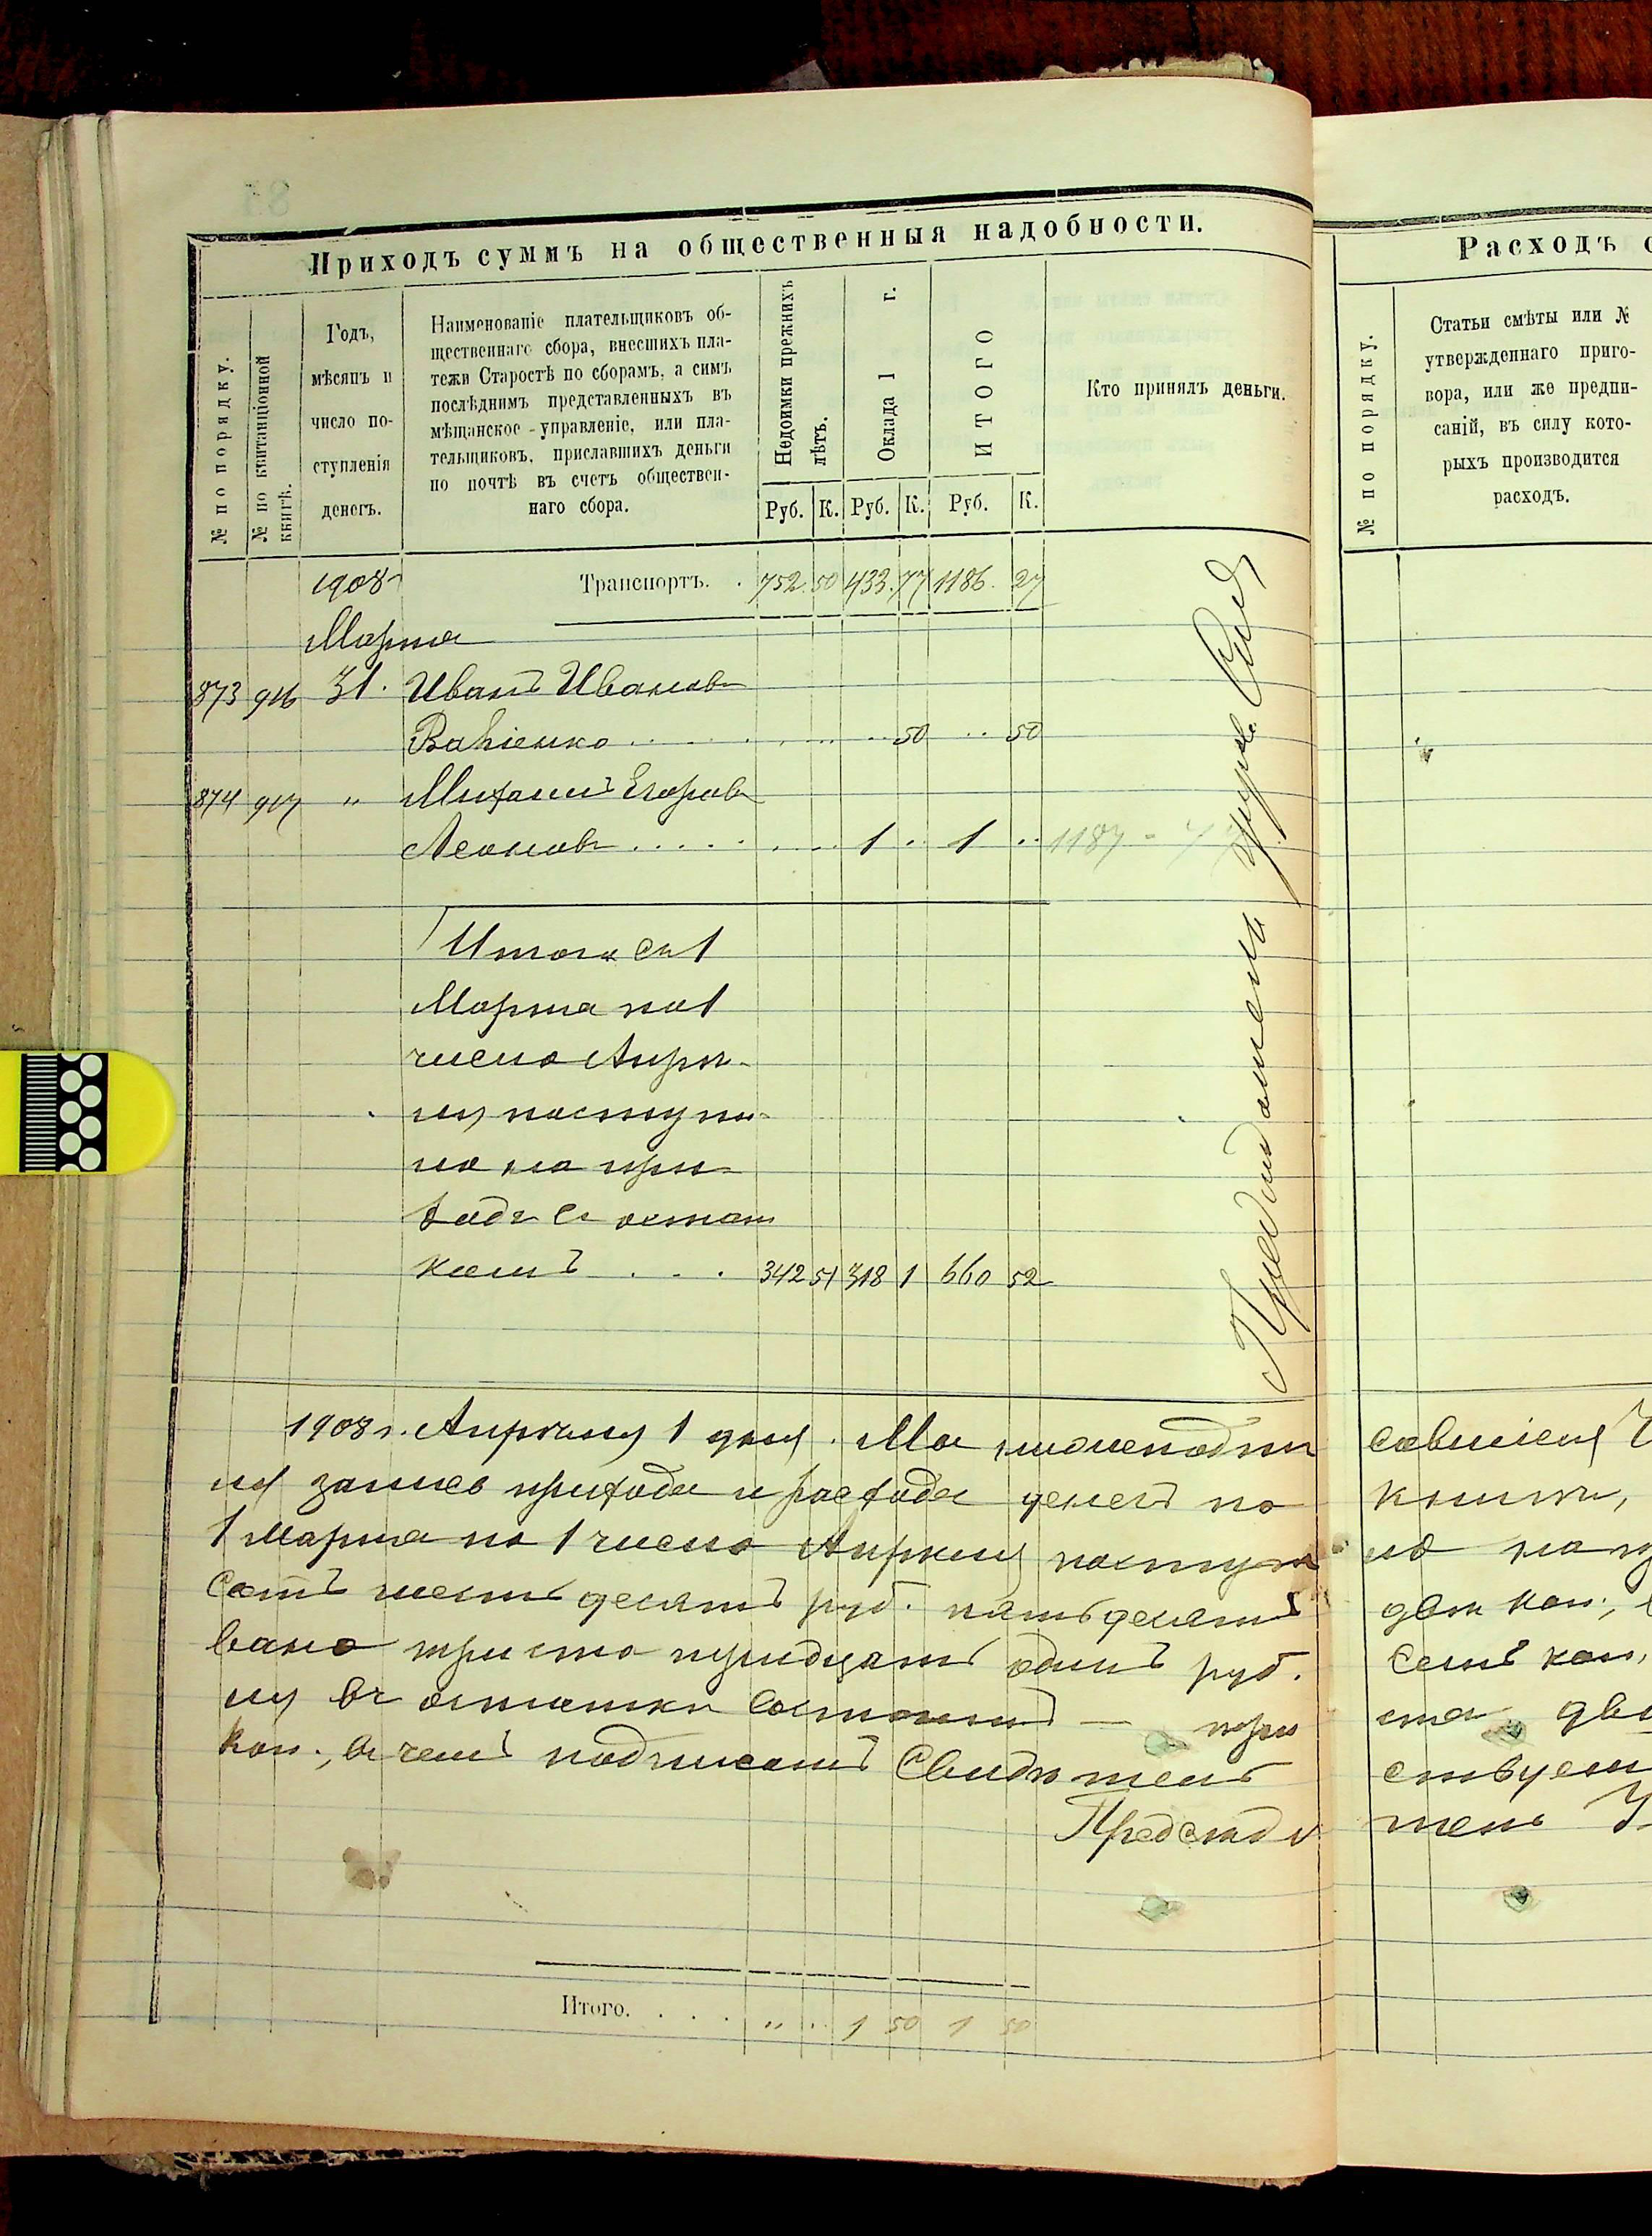 Приходъ суммъ на общественныя надобности.
№ по порядку.
№ по квитанціонной книгѣ.
Годъ,
мѣсяцъ и
число по-
ступленія
денегъ.
Наименованіе плательщиковъ об-
щественнаго сбора, внесшихъ пла-
тежи Старостѣ по сборамъ, а симъ
послѣднимъ представленныхъ въ
мѣщанское управленіе, или пла-
тельщиковъ, приславшихъ деньги
по почтѣ въ счетъ обществен-
наго сбора.
Недоимки прежнихъ лѣтъ.
Оклада 1 г.
ИТОГО
Кто принялъ деньги.
Руб. К. Руб. К. Руб. К.
1908 Транспортъ. . 752. 50 433. 77 1186. 27
Марта
873 916 31. Иванъ Ивановъ
50 50
874 917 " Михаилъ Егоровъ
Леоновъ 1 1 1187
Итого съ 1
Марта по 1
число Апрѣ-
ля поступи-
ло на при-
ходъ съ остат
комъ . . . 342 51 318 1 660 52
1908 г. Апрѣля 1 дня. Мы нижеподпи
ля запись прихода и расхода денегъ по
1 Марта по 1 число Апрѣля поступи
сотъ шестьдесятъ руб. пятьдесятъ
вано триста тридцать одинъ руб.
ля въ остатки состоитъ — три
коп., въ чемъ подписомъ Свидѣтель
Предсѣда
Итого. . . . " " 1 50 1 50
Расходъ с
№ по порядку.
Статьи смѣты или №
утвержденнаго приго-
вора, или же предпи-
саній, въ силу кото-
рыхъ производится
расходъ.
савшіеся
книги,
ло на
два коп.,
семь коп.
ста два
ствуем
тель